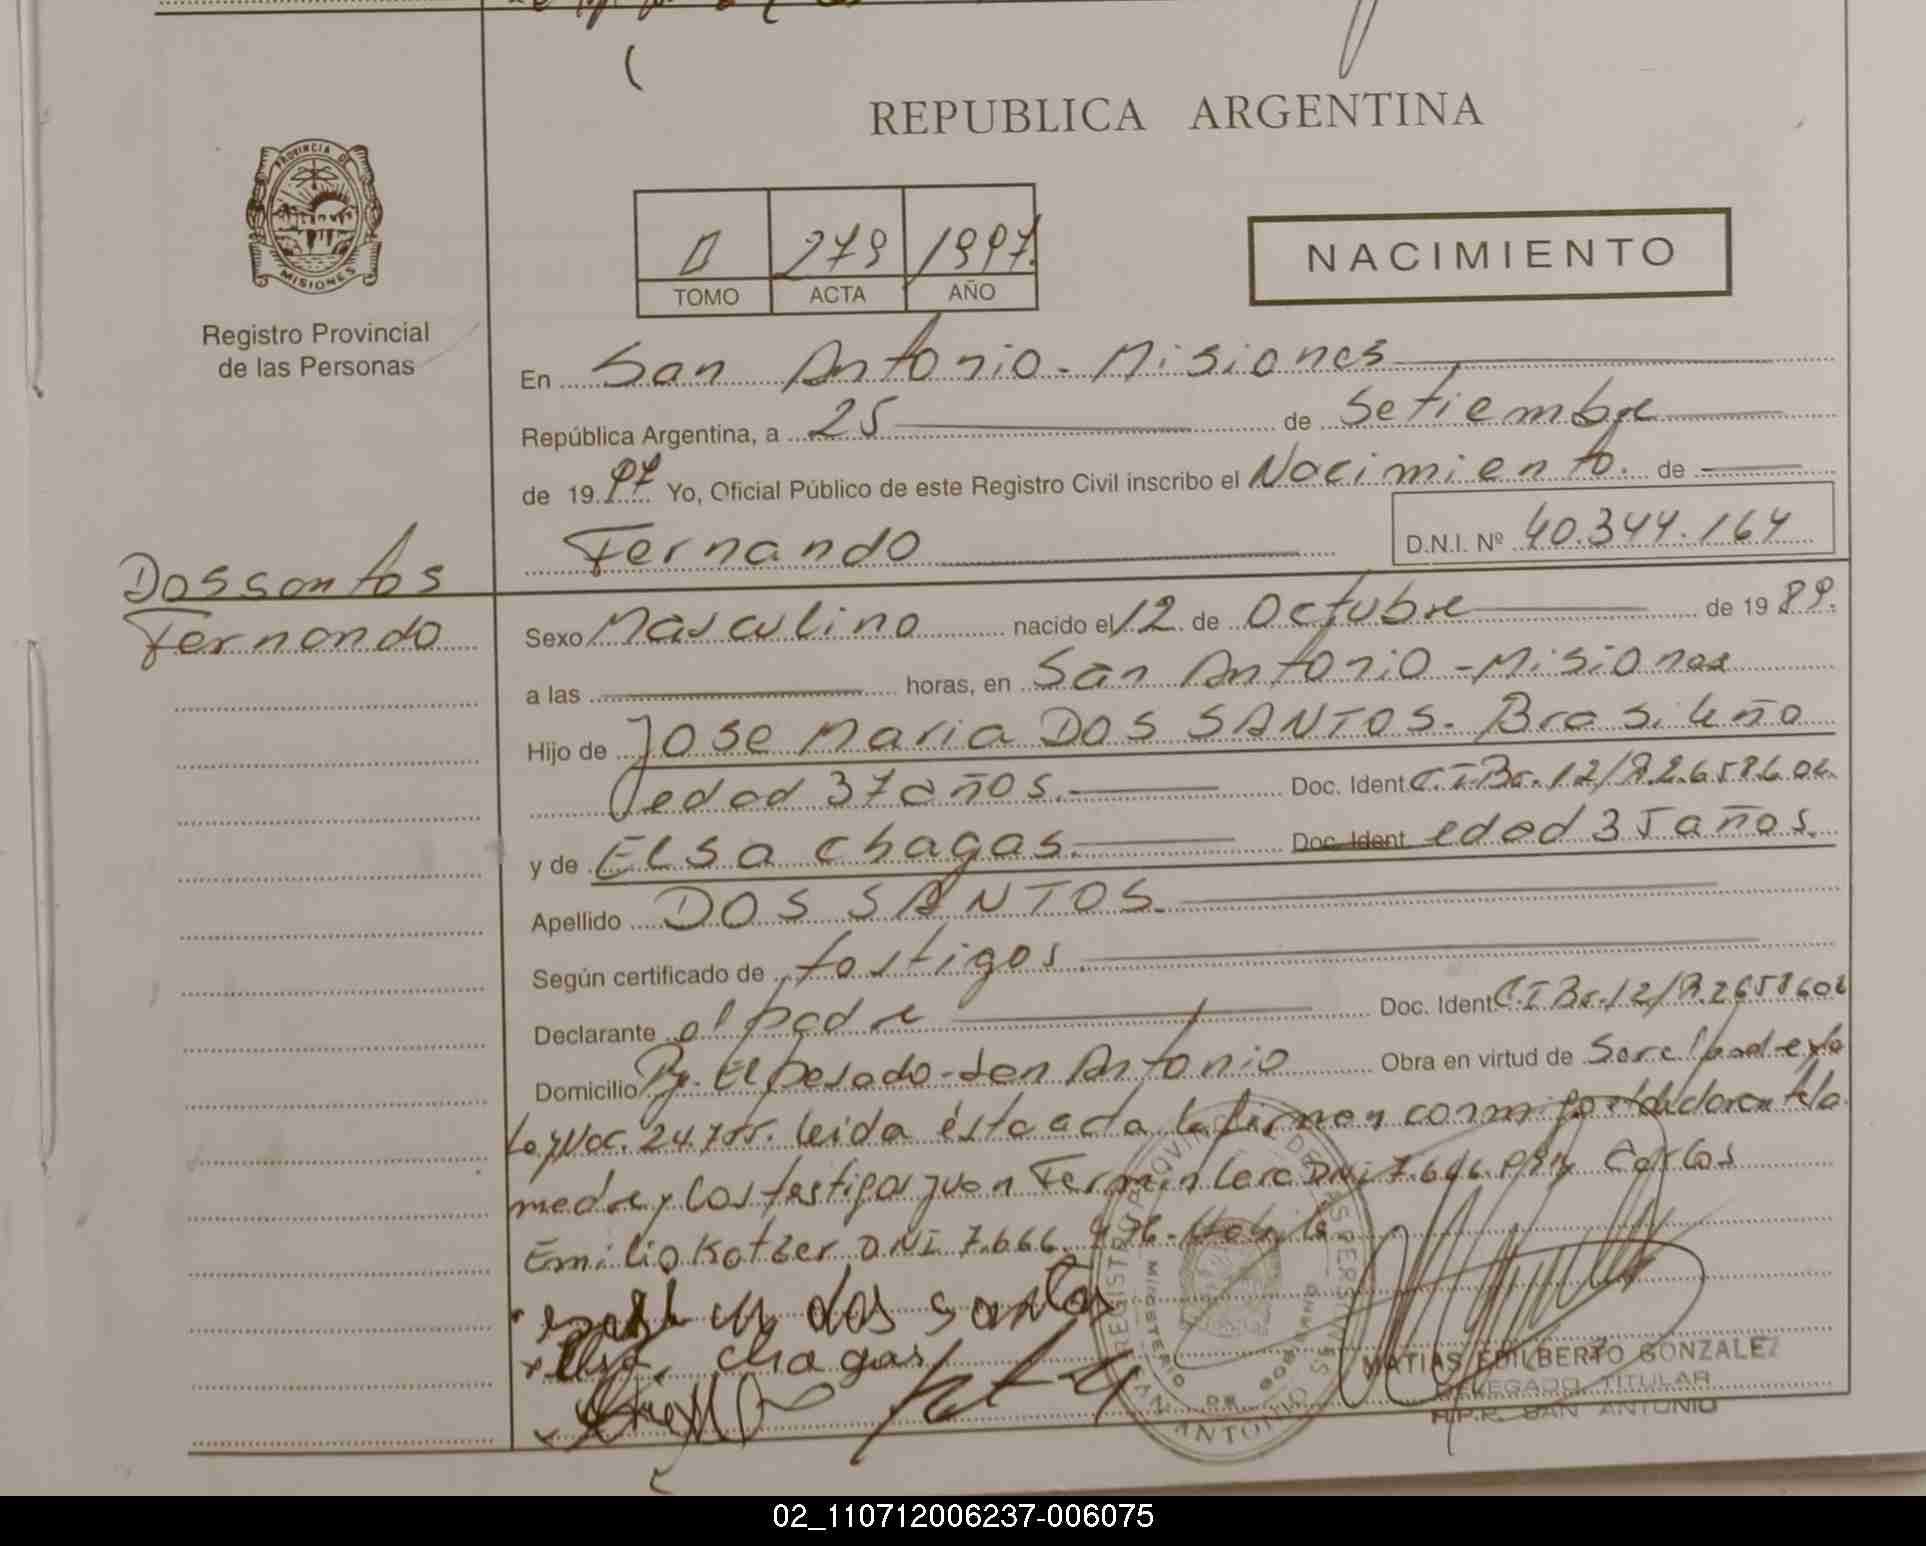 REPUBLICA ARGENTINA
PROVINCIA DE
MISIONES
Registro Provincial
de las Personas
279 1997
TOMO ACTA AÑO
NACIMIENTO
En San Antonio - Misiones
República Argentina, a 25 de Setiembre
de 19 97 Yo, Oficial Público de este Registro Civil inscribo el Nacimiento de
Fernando D.N.I. Nº 40.344.164
Dossantos
Fernando
Sexo Masculino nacido el 12 de Octubre de 19 89.
a las horas, en San Antonio - Misiones
Hijo de Jose Maria DOS SANTOS - Brasileño
edad 37 años. Doc. Ident
y de Elsa Chagas. Doc. Ident edad 35 años.
Apellido DOS SANTOS.
Según certificado de testigos
Declarante el padre Doc. Ident
Domicilio El pesado - San Antonio Obra en virtud de
leida ésta acta la firman conmigo
madre y los testigos Juan Fermin DNI Carlos
Emilio DNI 7.666.
dos santos
Elsa chagas
MATIAS EDILBERTO GONZALEZ
DELEGADO TITULAR
R.P.P. SAN ANTONIO
MINISTERIO DE GOBIERNO
SAN ANTONIO
02_110712006237-006075